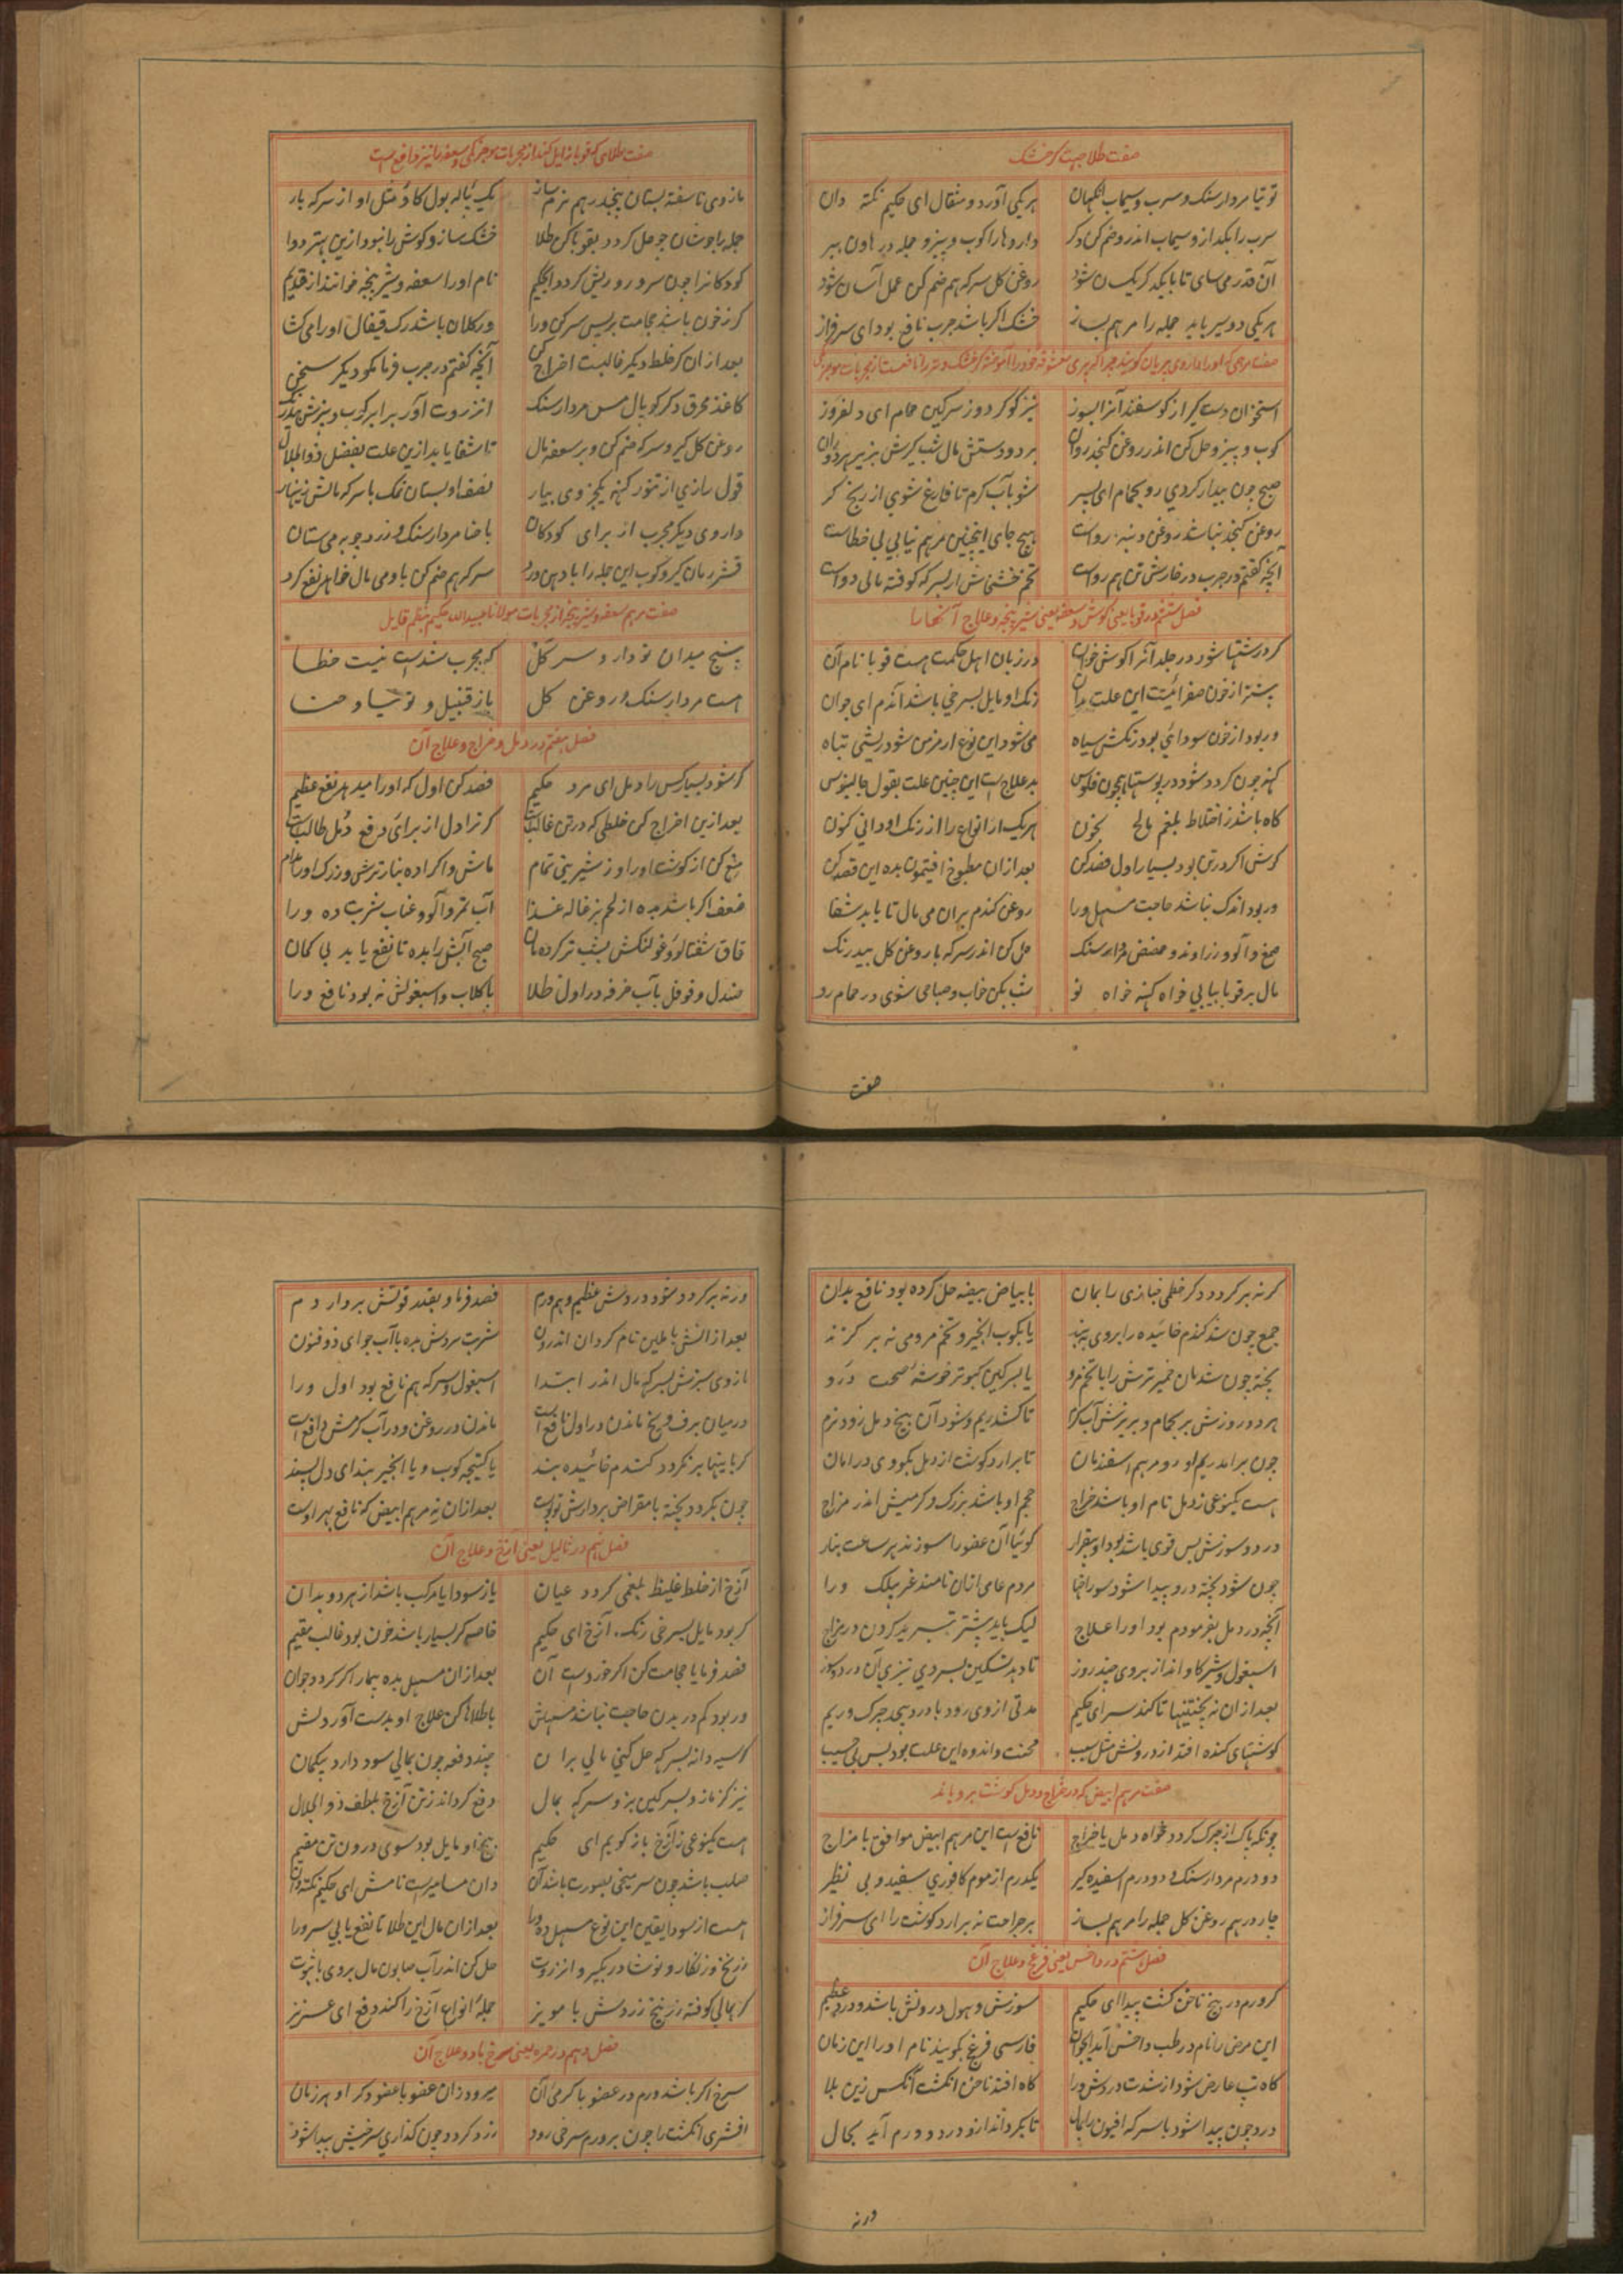 صفت طلا جهت گر خشک
توتیا مردارسنک و سرب و سیماب انکهان هر یکی آورد و مثقال ای حکیم نکته دان
سرب را بکداز و سیماب اندر و ضم کن دکر داروها را کوب و بیز و جمله در هاون ببر
آن قدر می سای تا با یکدکر یکسان شود روغن کل سرکه هم ضم کن عمل آسان شود
هر یکی دو سیر باید جمله را مرهم بساز خشک اکر باشد جرب نافع بود ای سرفراز
استخوان دست کیر از کوسفند آنرا بسوز نیز کوکرد و ز سرکین حمام ای دلفروز
کوب و بیز و حل کن اندر روغن کنجد روان بر دو دستش مال شب
صبح چون بیدار کردی رو بحمام ای پسر شو بآب کرم تا فارغ شوی از رنج کر
روغن کنجد نباشد روغن دنبه رواست هیچ جای اینچنین مرهم نیابی بی خطاست
آنچه کفتم در جرب در خارش تن هم رواست تخم خشخاش ار بسرکه کوفته مالی دواست
فصل ششم در قوبا یعنی کوش و سعفه یعنی شیرینجه و علاج آنها را
کر درشتیها شود در جلد آنرا کوش خوان در زبان اهل حکمت هست قوبا نام آن
بیشتر از خون صفرائیست این علت بدان رنک او مایل بسرخی باشد آندم ای جوان
ور بود از خون سودائی بود رنکش سیاه می شود این نوع ار مزمن شود ریشی تباه
کهنه چون کردد شود در پوستها همچون فلوس بد علاج است این چنین علت بقول جالینوس
کاه باشد ز اختلاط بلغم مالح بخون هر یک از انواع را از رنک او دانی کنون
کرش اکر در تن بود بسیار اول فصد کن بعد ازان مطبوخ افتیمون بده این قصد کن
ور بود اندک نباشد حاجت مسهل ورا روغن کندم بران می مال تا یابد شفا
صمغ و آلو و زراوند و مردارسنک حل کن اندر سرکه با روغن کل بیدرنک
مال بر قوبا بیابی خواه کهنه خواه نو شب بکن خواب و صباحی شوی در حمام رو
صفت
صفت طلای که قوبا زایل کند از مجربات
مازوی ناسفته بستان پنجدرهم نرم ساز یک پیاله بول کاو مثل او از سرکه باز
جمله را جوشان چو حل کردد بقوبا کن طلا خشک سازد کوش را نبود ازین بهتر دوا
کودکانرا چون سر و رو ریش کردد ای حکیم نام او را سعفه و شیرینجه خوانند از قدیم
کر ز خون باشد حجامت بر پس سر کن ورا ور کلان باشد رک قیفال او را می کشا
بعد ازان کر خلط دیکر غالبست اخراج کن آنچه کفتم در جرب فرما مکو دیکر سخن
کاغذ محرق دکر کوبال مس مردارسنک انزروت آور برابر کوب و بیزش بیدرنک
روغن کل کیر و سرکه ضم کن و بر سعفه مال تا شفا یابد ازین علت بفضل ذوالجلال
قول رازی از تنور کهنه یکجزوی بیار نصف او بستان نمک با سرکه مالش زینهار
داروی دیکر مجرب از برای کودکان با حنا مردارسنک و زردچوبه می ستان
قشر رمان کیر و کوب این جمله را با دهن ورد سرکه هم ضم کن با و می مال خواهد نفع کرد
صفت مرهم سعفه و شیرینجه از مجربات مولانا عبدالله حکیم بنظم قایل
پنج میدان تو دارو سر کل که مجرب شدست نیست خطا
هست مردارسنک و روغن کل باز قنبیل و توتیا و حنا
فصل هفتم در دمل و خراج و علاج آن
کر شود بسیار کس را دمل ای مرد حکیم فصد کن اول که او را میدهد نفع عظیم
بعد ازین اخراج کن خلطی که در تن غالبست کر ترا دل از برای دفع دمل طالبست
منع کن از کوشت او را و ز شیرینی تمام ماش واکر ده بنار ترش و زردک او را مدام
ضعف اکر باشد بده از لحم بزغاله غذا آب تمر و آلو و عناب شربت ده ورا
قاق شفتالو و غولنکش بشب تر کرده مان صبح آبش را بده تا نفع یابد بی کمان
صندل و فوفل بآب خرفه در اول طلا با کلاب و اسبغولش نه بود نافع ورا
کر نه بر کردد دکر خطمی خبازی را بمان با بیاض بیضه حل کرده بود نافع بدان
جمع چون شد کندم خائیده را بر وی ببند یا بکوب انجیر و تخم مرو می نه بر کزند
پخته چون شد مان خمیر ترش را با تخم مرو یا بسرکین کبوتر خوشه صحت درو
هر دو روزش بر بحمام و بریزش آب کرم تا کشد ریم و شود آن بیخ دمل زود نرم
چون برآمد ریم او رو مرهم اسفند مان تا برارد کوشت از دمل بکودی در امان
هست یکنوعی ز دمل نام او باشد خراج حجم او باشد بزرک و کرمیش اندر مزاج
درد و سوزش بس قوی باشد بود او بیقرار کوئیا آن عضو را سوزند هر ساعت بنار
چون شود پخته درو پیدا شود سوراخها مردم عامی ازان نامند غربیلک ورا
آنچه در دمل بفرمودم بود او را علاج لیک باید بیشتر تبرید کردن در مزاج
اسبغول و شیر کاو انداز بر وی چند روز تا دهد تسکین بسردی تیزی آن درد و سوز
بعد ازان نه پختنیها تا کند سر ای حکیم مدتی از وی رود با درد بیحد چرک و ریم
کوشتهای کنده افتد از درونش مثل سیب محنت و اندوه این علت بود بس بی حسیب
صفت مرهم ابیض که در خراج و دمل کوشت برویاند
چونکه پاک از چرک کردد خواه دمل یا خراج نافع است این مرهم ابیض موافق با مزاج
دو درم مردارسنک و دو درم اسفیده کیر یکدرم از موم کافوری سفید و بی نظیر
چار درهم روغن کل جمله را مرهم بساز بر جراحت نه برارد کوشت را ای سرفراز
فصل هشتم در داحس یعنی فرغ و علاج آن
کر ورم در بیخ ناخن کشت پیدا ای حکیم سوزش و هول درونش باشد و درد عظیم
این مرض را نام در طب داحس آمد ای جوان فارسی فرغ بکویند نام او را این زمان
کاه تب عارض شود از شدت دردش ورا کاه افتد ناخن انکشت آنکس زین بلا
درد چون پیدا شود با سرکه افیون را بمال تا بکرداند ازو درد و ورم آید بحال
ورنه
ورنه بر کردد شود دردش عظیم و هم ورم فصد فرما و بقدر قوتش بردار دم
بعد ازانش با طین نام کردان اندرون شربت سردش بده با آب جو ای ذوفنون
مازوی سبزش بسرکه مال اندر ابتدا اسبغول و سرکه هم نافع بود اول ورا
در میان برف و یخ ماندن در اول نافع است ماندن در روغن و در آب کرمش دافع است
کر باینها بر نکردد کندم خائیده بند یا کتیجه کوب و یا انجیر بند ای دل پسند
چون بکردد پخته با مقراض بردارش توپست بعد ازان نه مرهم ابیض که نافع بهر اوست
فصل نهم در ثالیل یعنی آزخ و علاج آن
آزخ از خلط غلیظ بلغمی کردد عیان یا ز سودا یا مرکب باشد از هر دو بدان
کر بود مایل بسرخی رنک آزخ ای حکیم خاصه کر بسیار باشد خون بود غالب مقیم
فصد فرما یا حجامت کن اکر خوردست آن بعد ازان مسهل بده بیمار اکر کردد جوان
ور بود کم در بدن حاجت نباشد مسهلش با طلاها کن علاج او بدست آور دلش
کر سیه دانه بسرکه حل کنی مالی بران چند دفعه چون بمالی سود دارد بیکمان
نیز کزمازو بسرکین بز و سرکه بمال دفع کرداند ز تن آزخ بلطف ذوالجلال
هست یکنوعی ز آزخ باز کویم ای حکیم بیخ او مایل بود سوی درون تن مقیم
صلب باشد چون سر میخی بصورت باشد آن دان مسامیرست نامش ای حکیم نکته دان
هست از سودا یقین این نوع مسهل ده ورا بعد ازان مال این طلا تا نفع یابی سرورا
زرنیخ و زنکار و نوشادر بکیر و انزروت حل کن اندر آب صابون مال بر وی با ثبوت
کر بمالی کوفته زرنیخ زردش با مویز جمله انواع آزخ را کند دفع ای عزیز
فصل دهم در حمره یعنی سرخ باد و علاج آن
سرخ اکر باشد ورم در عضو با کرمی آن میرود زان عضو با عضو دکر او هر زمان
افشری انکشت را چون بر ورم سرخی رود زرد کردد چون کذاری سرخیش پیدا شود